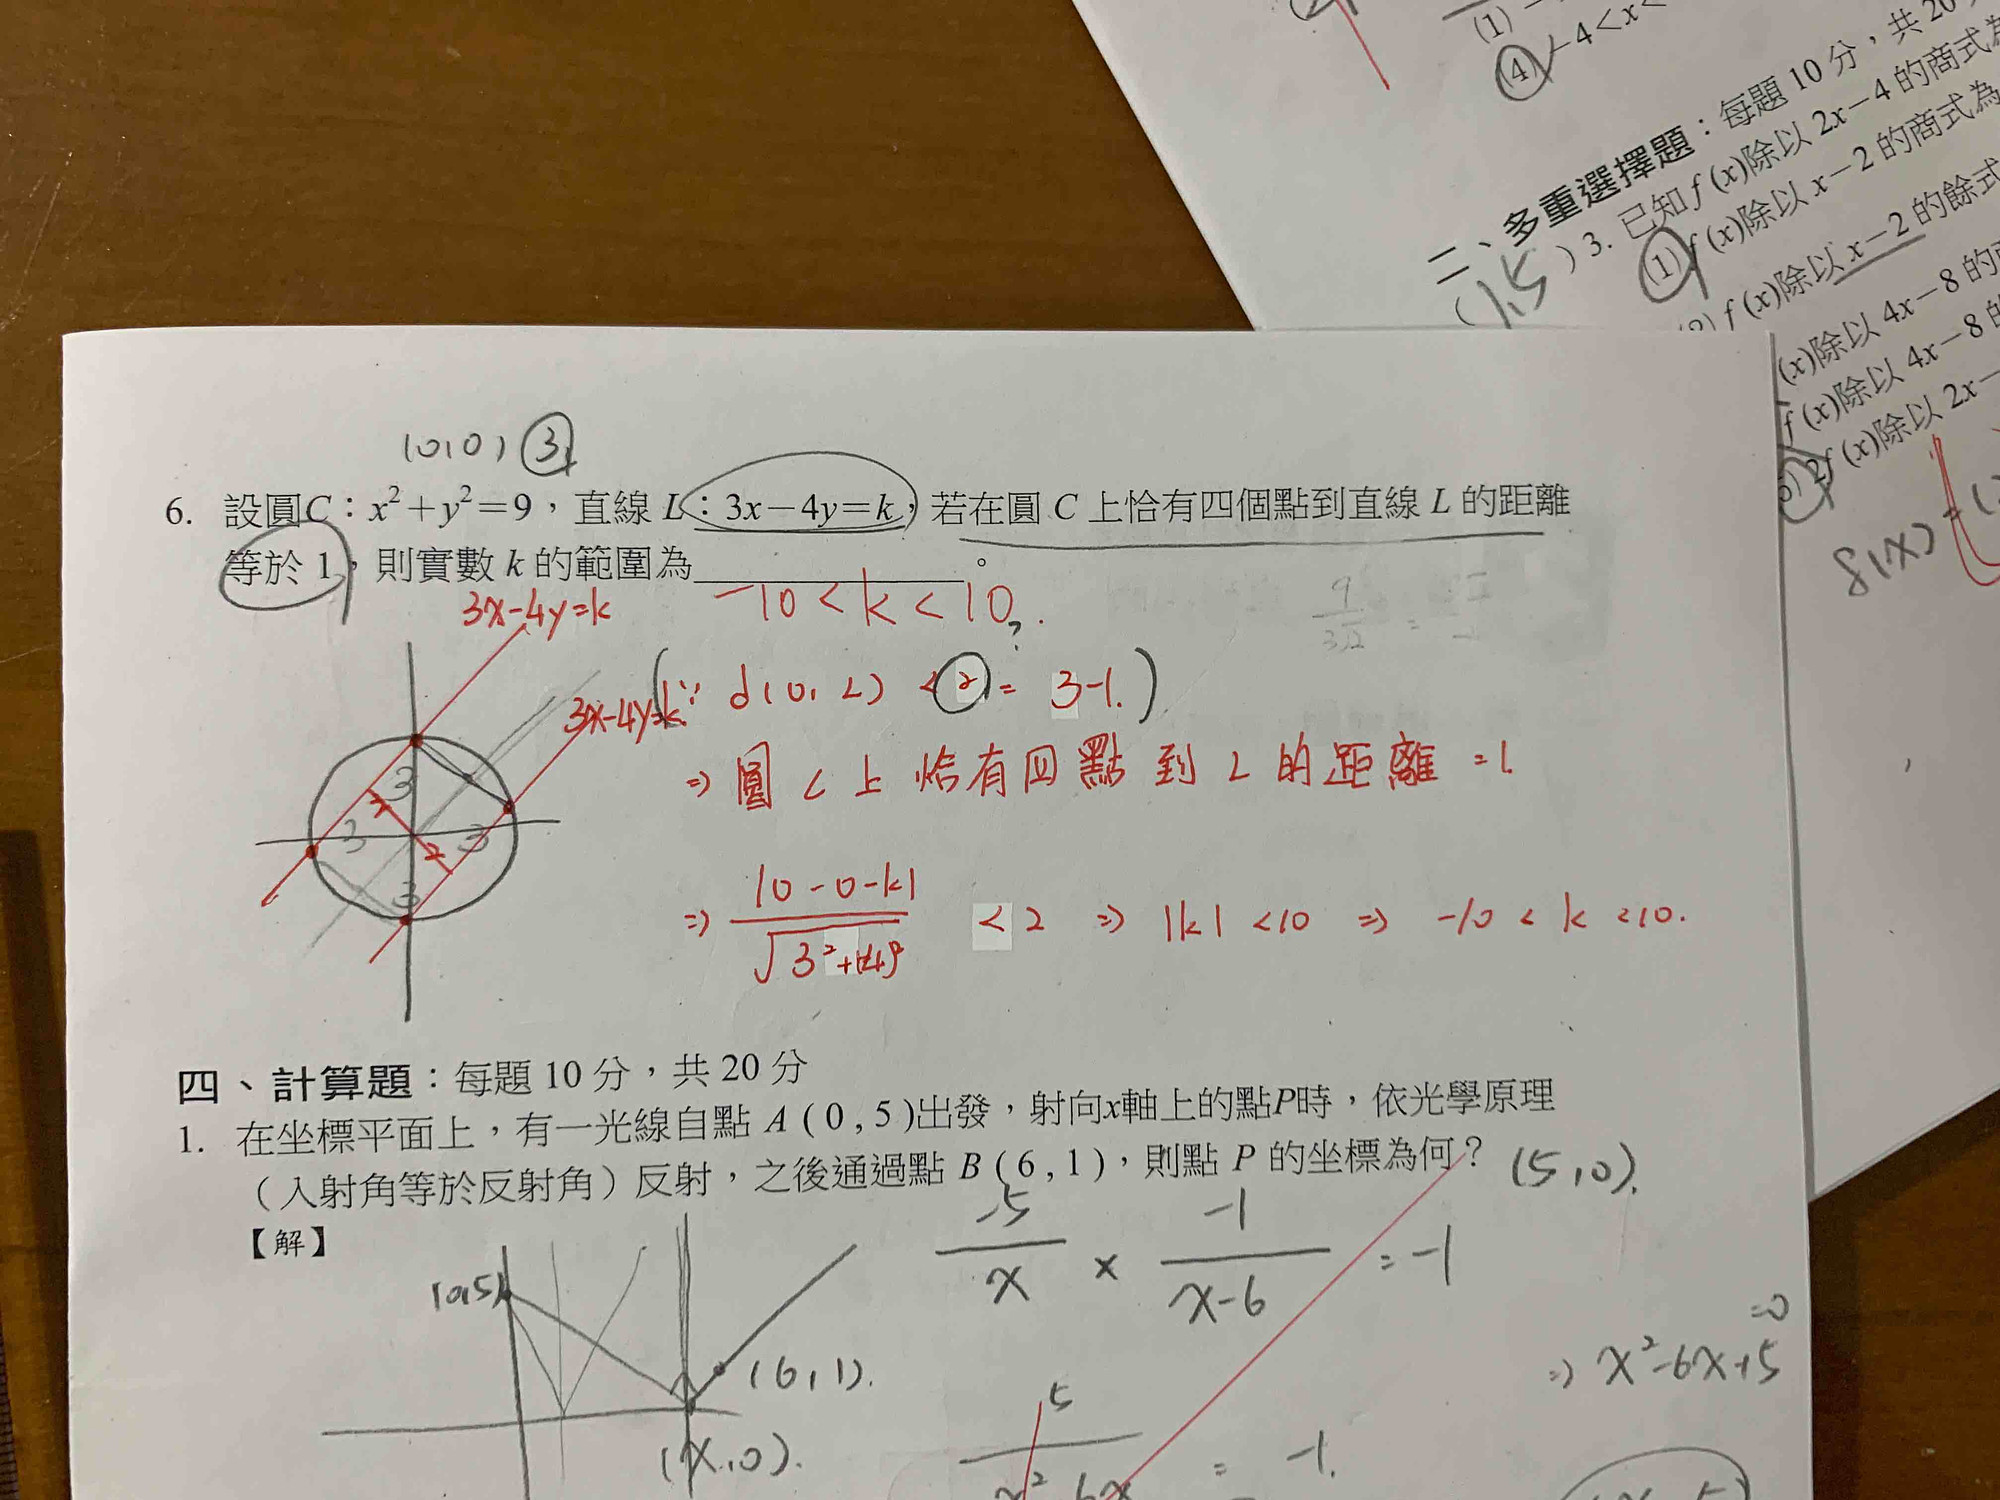 (1)
(4) -4<x<
二、多重選擇題：每題 10 分，共 20
(1,5 ) 3. 已知 f (x)除以 2x-4 的商式為
(1) f (x)除以 x-2 的商式為
f (x)除以 x-2 的餘式
(x)除以 4x-8 的商
f (x)除以 4x-8 的
2f (x)除以 2x-
(0,0) 3
6. 設圓C：x²+y²=9，直線 L：3x-4y=k，若在圓 C 上恰有四個點到直線 L 的距離
等於 1，則實數 k 的範圍為 。
-10 < k < 10 ?.
3x-4y=k
9/3√2 =
3x-4y=k
(∵ d(0, L) < 2 = 3-1.)
⇒ 圓 C 上 恰有四點 到 L 的 距離 =1.
3
3
2
3
2
3
⇒ |0-0-k|/√3²+(-4)² < 2 ⇒ |k| <10 ⇒ -10 < k <10.
四、計算題：每題 10 分，共 20 分
1. 在坐標平面上，有一光線自點 A ( 0 , 5 )出發，射向x軸上的點P時，依光學原理
（入射角等於反射角）反射，之後通過點 B ( 6 , 1 )，則點 P 的坐標為何？ (5,0).
【解】
-5/x × -1/x-6 = -1
(0,5)
(6,1).
(x,0).
=0
⇒ x²-6x+5
5/x²-6x = -1.